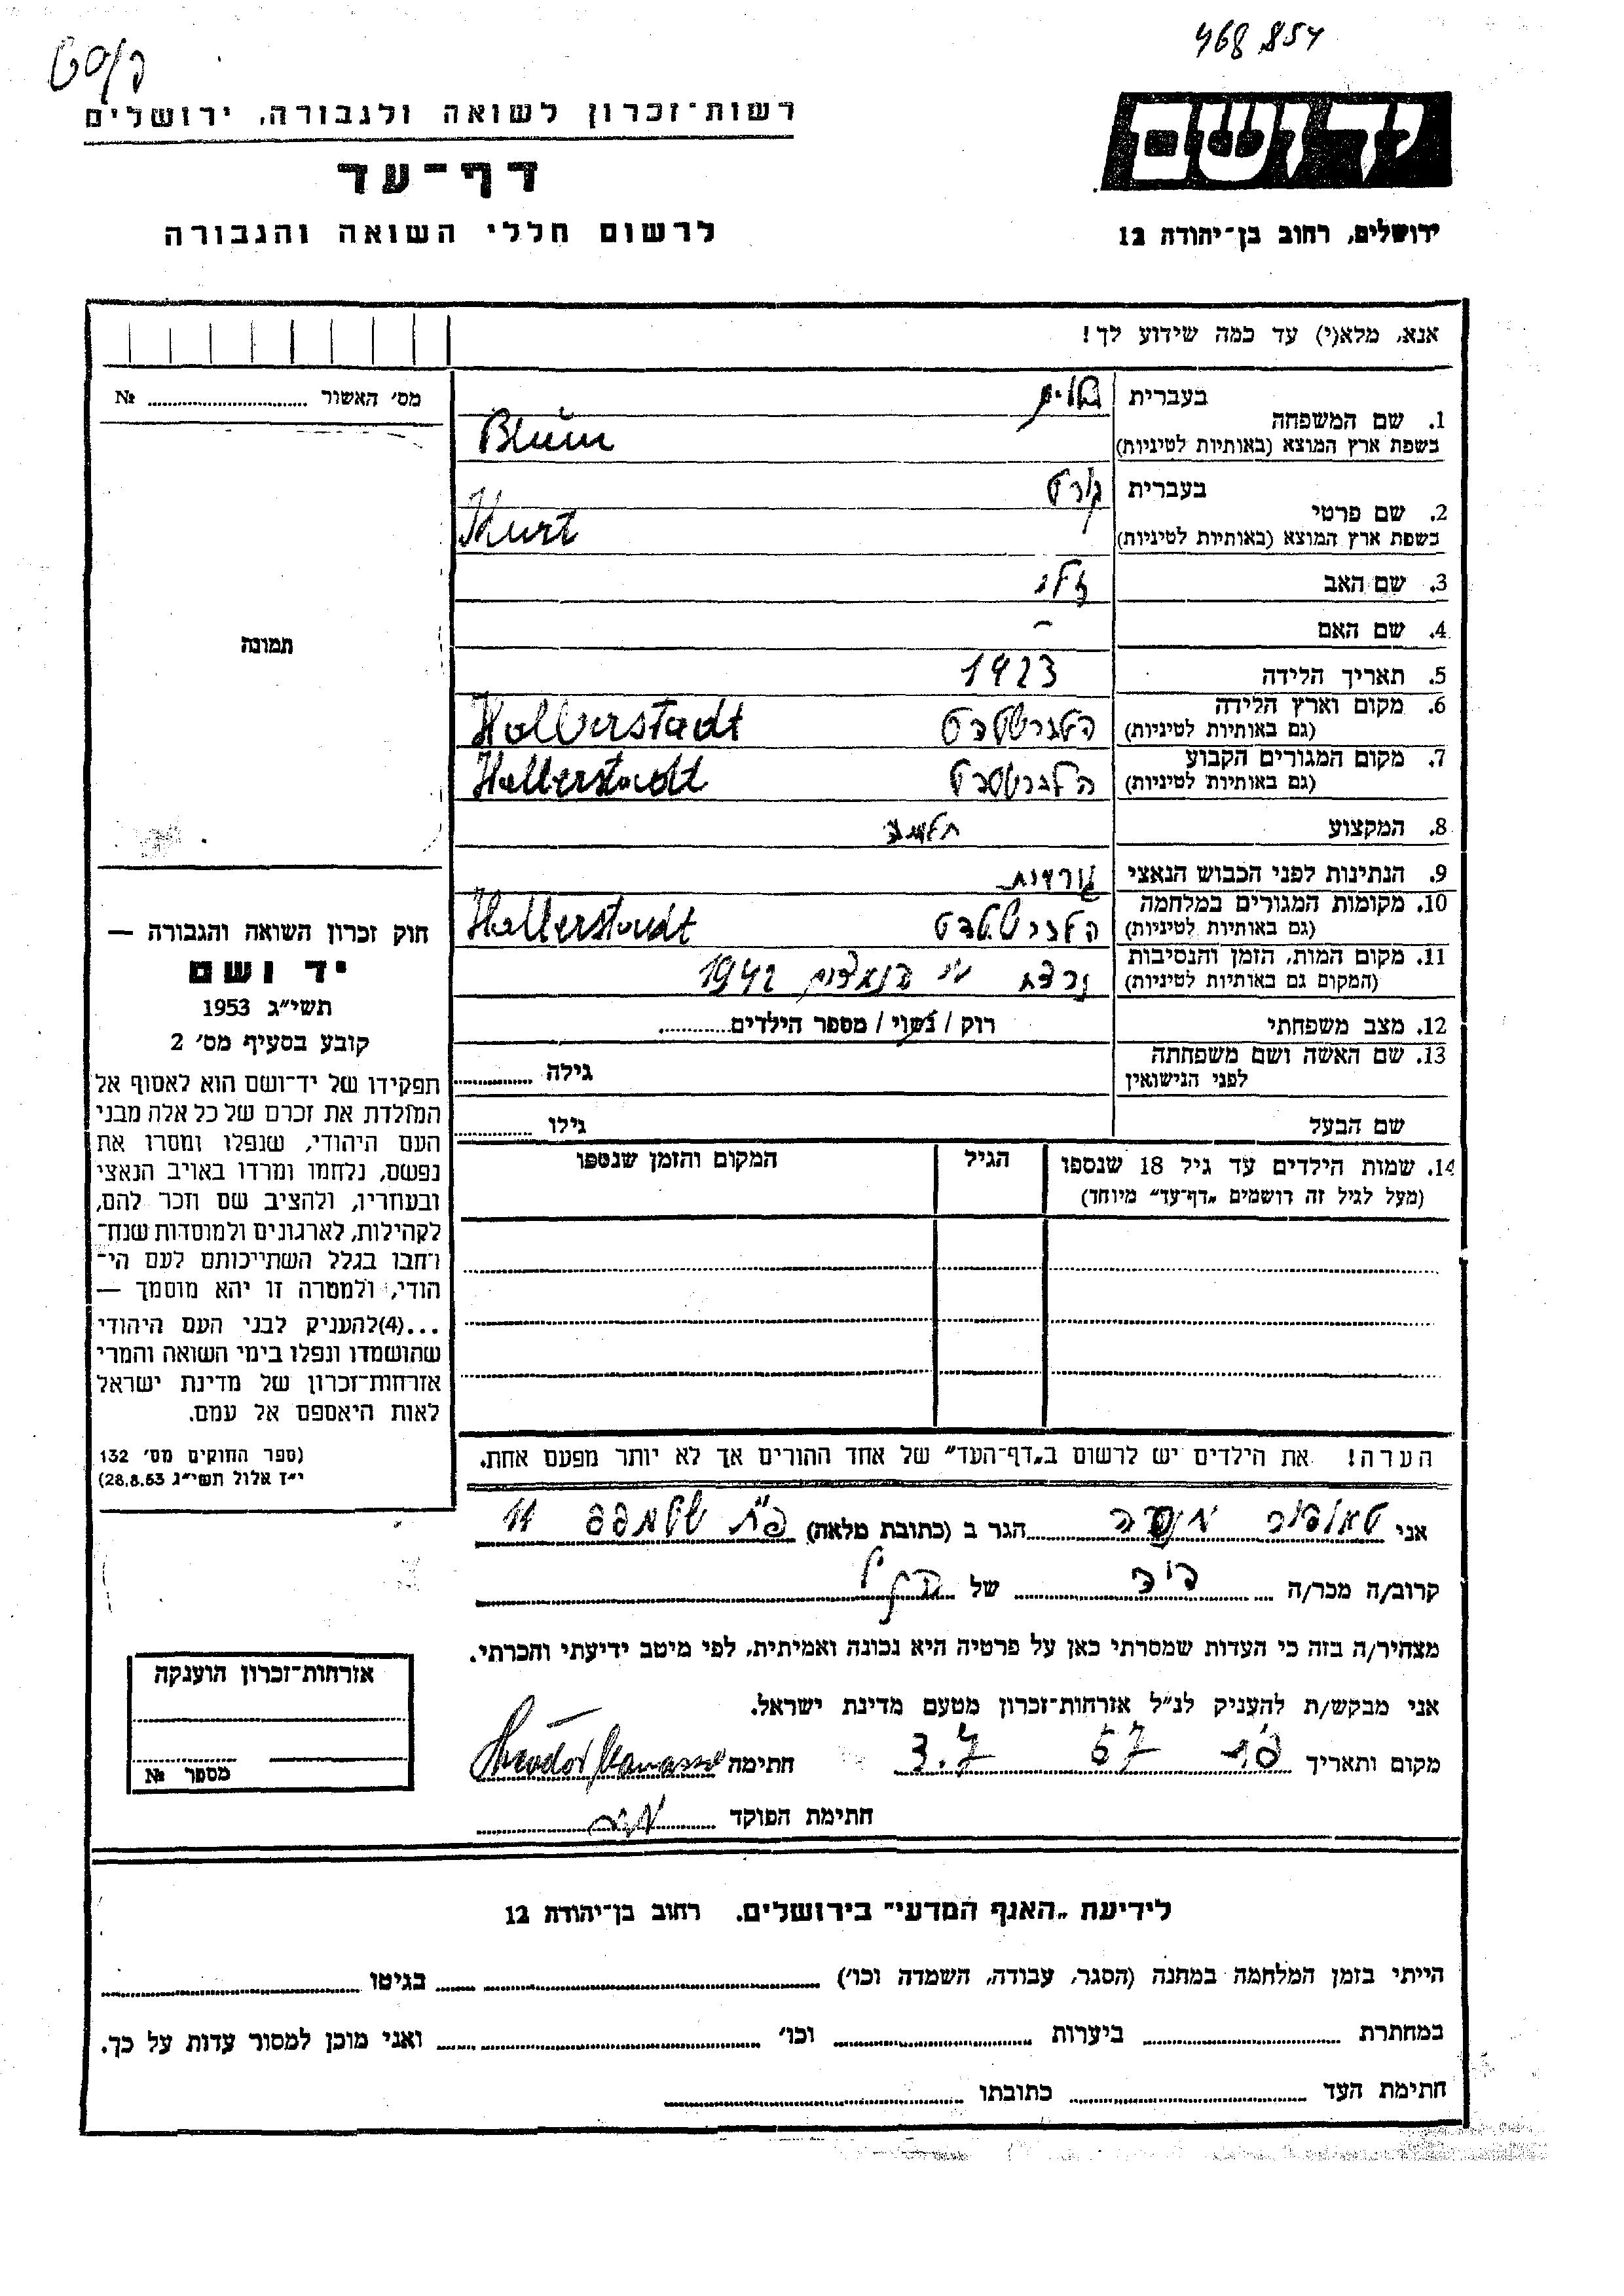 468 854
רשות־זכרון לשואה ולגבורה, ירושלים
דף־עד
לרשום חללי השואה והגבורה
יד ושם
ירושלים, רחוב בן־יהודה 12
אנא, מלא(י) עד כמה שידוע לך!
מס׳ האשור № ........
1. שם המשפחה
בעברית בלום
בשפת ארץ המוצא (באותיות לטיניות) Blum
2. שם פרטי
בעברית קורט
בשפת ארץ המוצא (באותיות לטיניות) Kurt
3. שם האב
4. שם האם –
5. תאריך הלידה 1923
6. מקום וארץ הלידה
(גם באותיות לטיניות) הלברשטדט Halberstadt
7. מקום המגורים הקבוע
(גם באותיות לטיניות) הלברשטדט Halberstadt
8. המקצוע
9. הנתינות לפני הכבוש הנאצי גרמנית
10. מקומות המגורים במלחמה
(גם באותיות לטיניות) הלברשטדט Halberstadt
11. מקום המות, הזמן והנסיבות
(המקום גם באותיות לטיניות) נרצח ע״י הנאצים 1942
12. מצב משפחתי רוק / נשוי / מספר הילדים........
13. שם האשה ושם משפחתה
לפני הנישואין גילה ........
שם הבעל גילו ........
14. שמות הילדים עד גיל 18 שנספו
(מעל לגיל זה רושמים „דף־עד״ מיוחד)
הגיל
המקום והזמן שנספו
הערה! את הילדים יש לרשום ב„דף־העד״ של אחד ההורים אך לא יותר מפעם אחת.
תמונה
חוק זכרון השואה והגבורה —
יד ושם
תשי״ג 1953
קובע בסעיף מס׳ 2
תפקידו של יד־ושם הוא לאסוף אל
המולדת את זכרם של כל אלה מבני
העם היהודי, שנפלו ומסרו את
נפשם, נלחמו ומרדו באויב הנאצי
ובעוזריו, ולהציב שם וזכר להם,
לקהילות, לארגונים ולמוסדות שנח־
רחבו בגלל השתייכותם לעם הי־
הודי, ולמטרה זו יהא מוסמך —
...(4)להעניק לבני העם היהודי
שהושמדו ונפלו בימי השואה והמרי
אזרחות־זכרון של מדינת ישראל
לאות היאספם אל עמם.
(ספר החוקים מס׳ 132
י״ז אלול תשי״ג 28.8.53)
אני תאודור מנשה הגר ב (כתובת מלאה) 11
קרוב/ה מכר/ה דוד של הנ״ל
מצהיר/ה בזה כי העדות שמסרתי כאן על פרטיה היא נכונה ואמיתית, לפי מיטב ידיעתי והכרתי.
אני מבקש/ת להעניק לנ״ל אזרחות־זכרון מטעם מדינת ישראל.
מקום ותאריך 3.7 57 חתימה Theodor Manasse
חתימת הפוקד ........
אזרחות־זכרון הוענקה
מספר №
לידיעת „האגף המדעי״ בירושלים. רחוב בן־יהודה 12
הייתי בזמן המלחמה במחנה (הסגר, עבודה, השמדה וכו׳) ........ בגיטו ........
במחתרת ........ ביערות ........ וכו׳ ........ ואני מוכן למסור עדות על כך.
חתימת העד ........ כתובתו ........